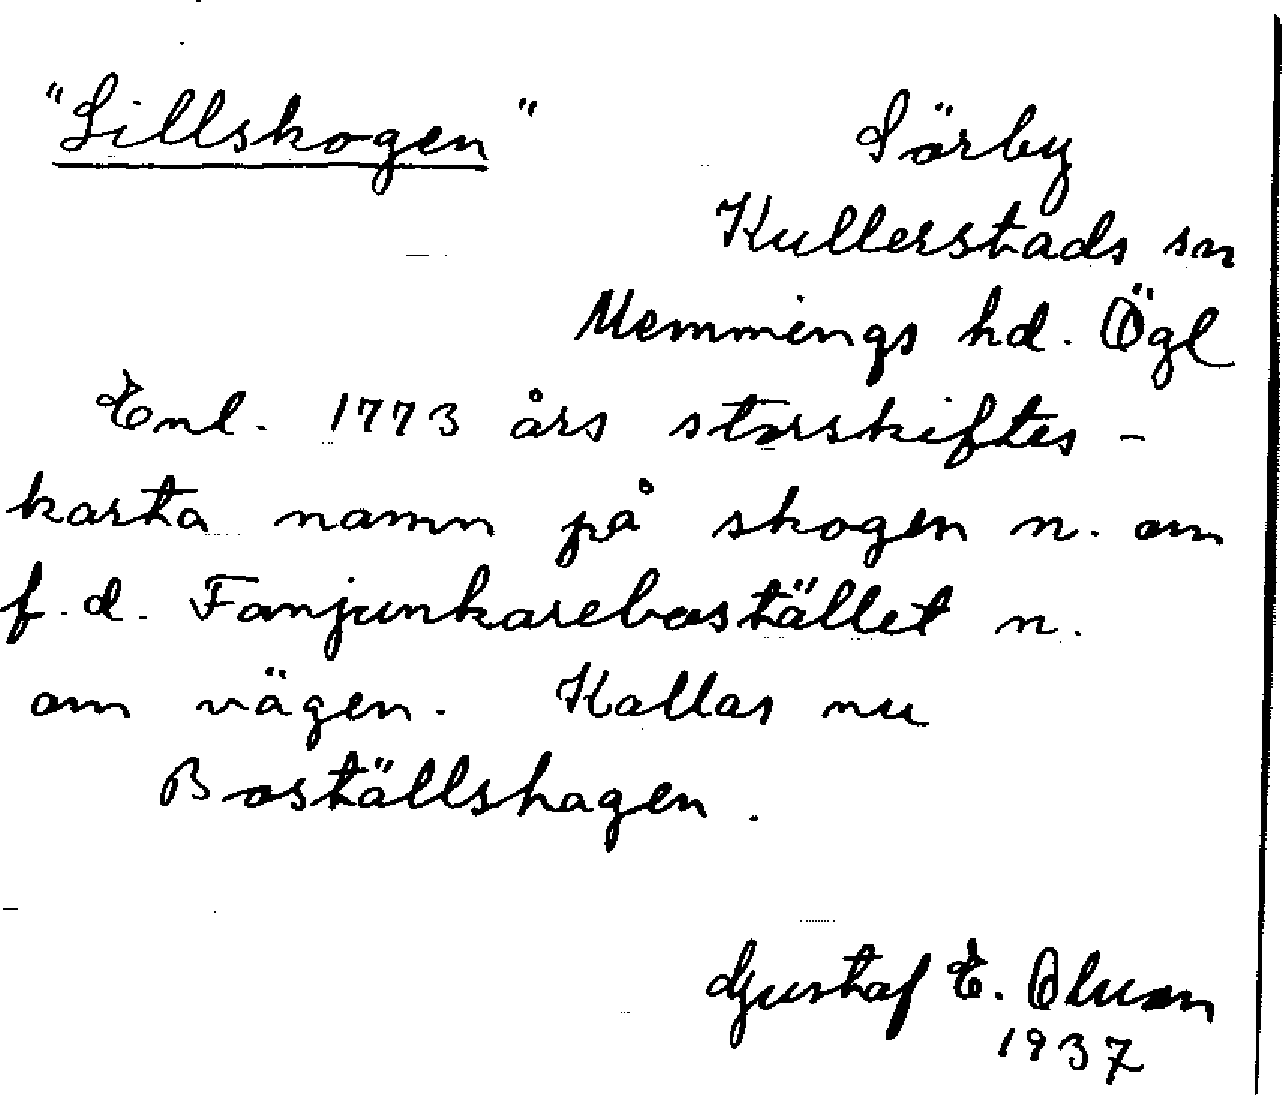 "Lillskogen"
Sörby
Kullerstads sn
Memmings hd. Ögl
Enl. 1773 års storskiftes-
karta namn på skogen n. om
f.d. Fanjunkarebostället n.
om vägen. Kallas nu
Boställshagen.
Gustaf E. Olsson
1937